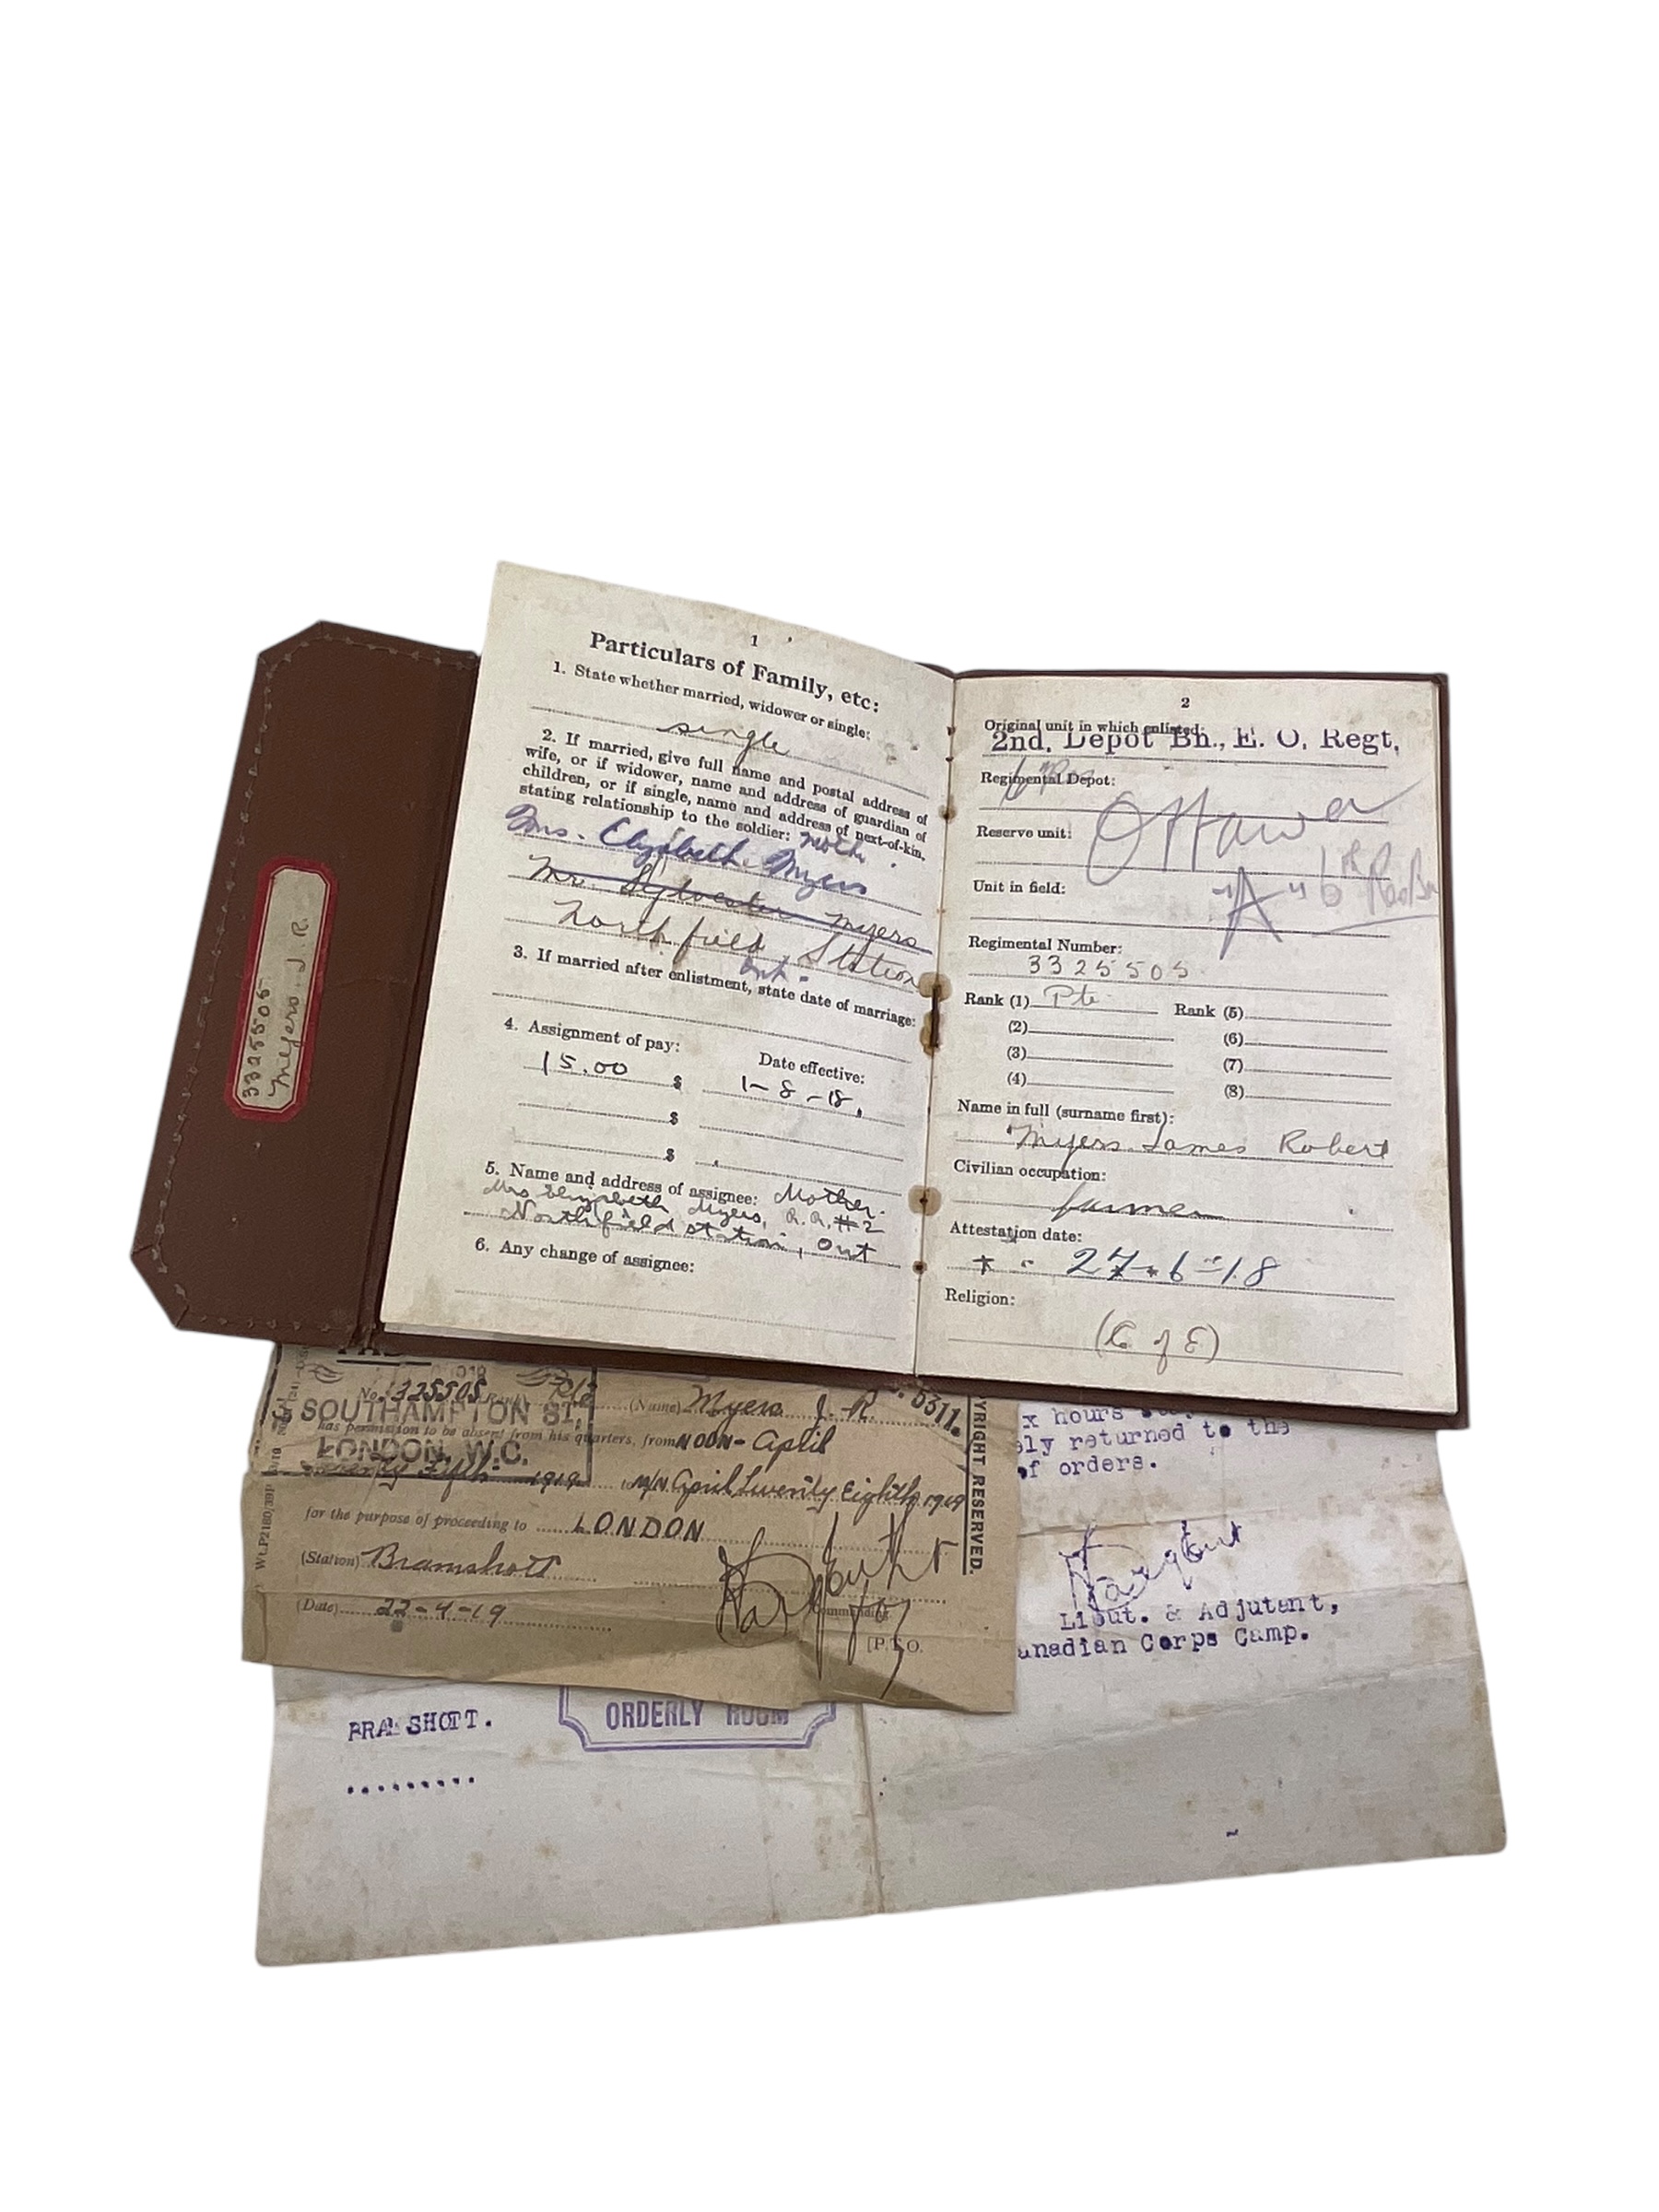 3325505
Myers. J. R.
1
Particulars of Family, etc:
1. State whether married, widower or single:
single
2. If married, give full name and postal address of
wife, or if widower, name and address of guardian of
children, or if single, name and address of next-of-kin,
stating relationship to the soldier:
Mrs. Elizabeth Myers
Mr. Sylvester Myers
Northfield Station
Ont.
3. If married after enlistment, state date of marriage:
4. Assignment of pay:
Date effective:
15.00 $ 1-8-18.
$
$
5. Name and address of assignee: Mother.
Mrs Elizabeth Myers, R.R. #2
Northfield Station, Ont
6. Any change of assignee:
2
Original unit in which enlisted:
2nd. Depot Bn., E. O. Regt,
Regimental Depot:
Ottawa
Reserve unit:
Unit in field:
"A" 6th Res Bn
Regimental Number:
3325505
Rank (1) Pte Rank (5)
(2) (6)
(3) (7)
(4) (8)
Name in full (surname first):
Myers James Robert
Civilian occupation:
farmer
Attestation date:
27.6-18
Religion:
(C of E)
No. 3325505 (Rank) Pte (Name) Myers J. R.
SOUTHAMPTON ST,
LONDON, W.C.
5311.
has permission to be absent from his quarters, from NOON - April
Fifth 1919 to M/N April Twenty Eighth 1919
for the purpose of proceeding to LONDON
(Station) Bramshott
(Date) 22-4-19
Commanding
[P.T.O.
YRIGHT RESERVED.
x hours
ely returned to the
of orders.
Lieut. & Adjutant,
anadian Corps Camp.
ORDERLY ROOM
BRAMSHOTT.
.........